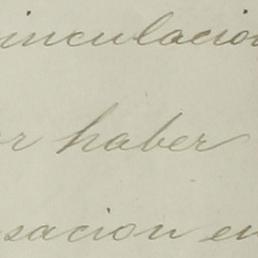 inculacion
or haber
sacion en